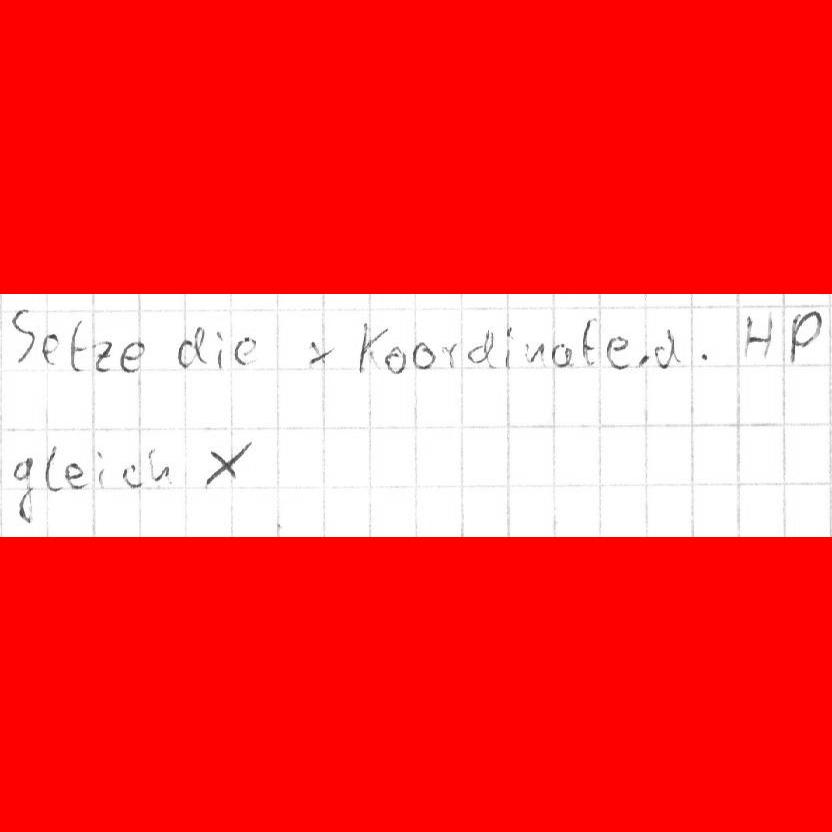 Setze die x Koordinate d. HP
gleich X